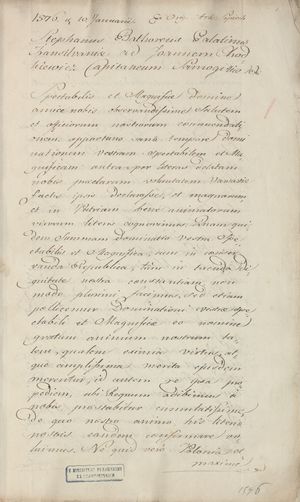 1576 d. 10 Januarii. Ex Orig. Arch.
Stephanus Bathoreus Palatinus
Transilvaniæ ad Joannem Chod
kiewicz Capitaneum Samogitiæ
Spectabilis et Magnifice Domine
amice nobis observandissime Salutem
et officiorum nostrorum commendati
onem. opportuno sane tempore Domi
nationem vestram spectabilem et Ma
gnificam antea per literas delatam
nobis præclaram voluntatem
factis ipsis declarasse, et magnorum
et in Patriam bene animatorum
virorum literis cognovimus, Quam qui
dem Summam Dominatio Vestra Spe
ctabilis et Magnifica, cum in conser
vanda Republica, tum in tuenda di
gnitate nostra constantiam non
modo plurimi facimus, sed etiam
pollicemur Dominationi Vestræ spe
ctabili et Magnificæ eo nomine
gratum animum nostrum ta
lem, qualem eximia virtus, at
que amplissima merita ejusdem
merentur, id autem re ipsa pro
pediem, ubi Regnum adibimus à
nobis præstabitur cumulatissime,
de quo nostro animo his literis
nostris eandem confirmare vo
luimus. Ne quid vero Polonia vel
maximo
1576